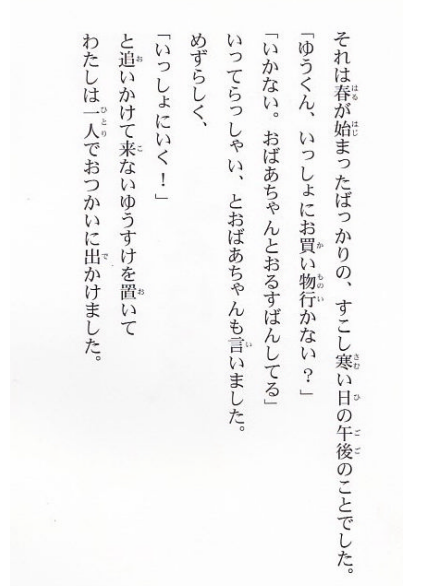 それは春が始まったばっかりの、すこし寒い日の午後のことでした。
「ゆうくん、いっしょにお買い物行かない？」
「いかない。おばあちゃんとおるすばんしてる」
いってらっしゃい、とおばあちゃんも言いました。
めずらしく、
「いっしょにいく！」
と追いかけて来ないゆうすけを置いて
わたしは一人でおつかいに出かけました。